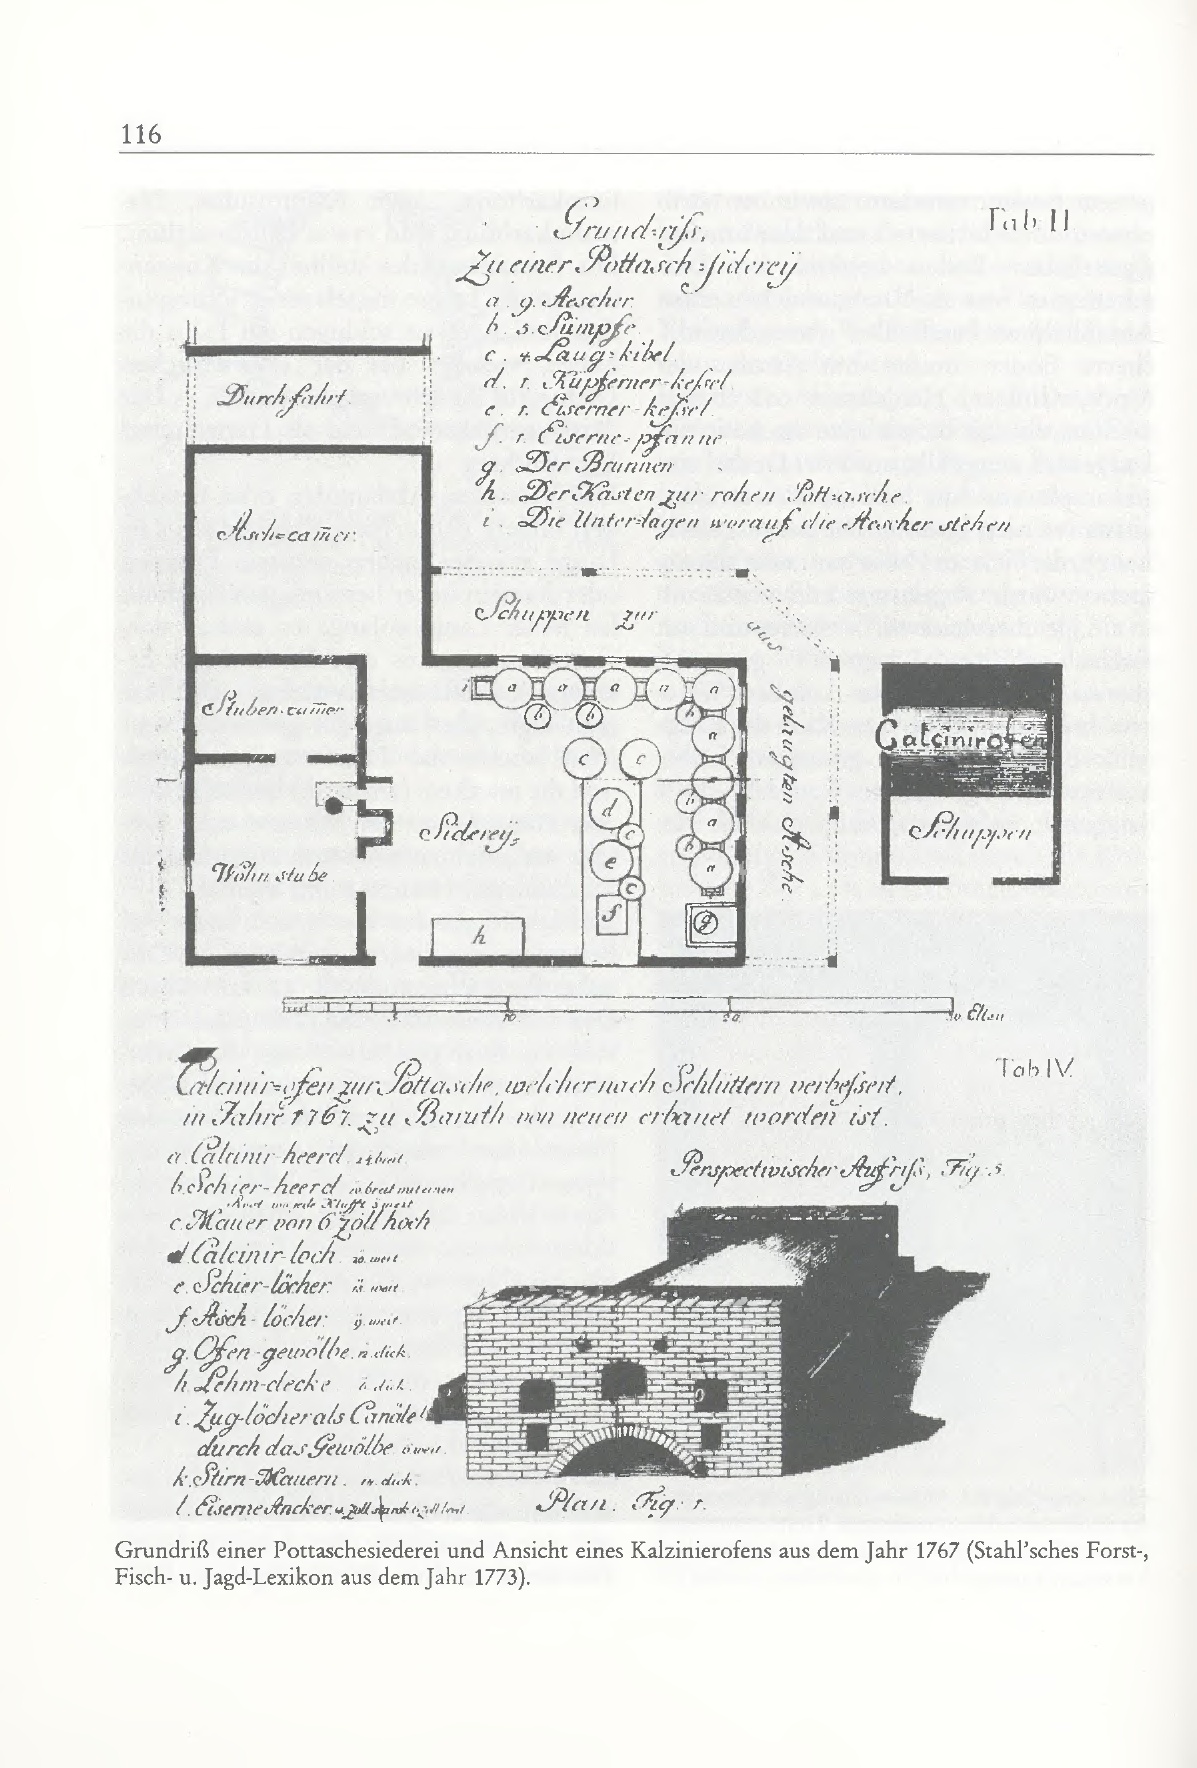 116
Tab II
Grund-riſs,
Zu einer Pottasch-ſiderey
a. 9. Aescher.
b. 5. Sümpfe.
c. 4. Laug-kibel.
d. 1. Kupferner-keſsel.
e. 1. Eiserner-keſsel.
f. 1. Eiserne-pfanne.
g. Der Brunnen.
h. Der Kasten zur rohen Pott-asche.
i. Die Unter-lagen worauf die Aescher stehen.
Durchfahrt
Asch-cam̅er.
Schuppen zur
aus
gelaugten Asche.
Stuben-cam̅er
i a a a a a
b b b
c c
a
a
Calcinirofen
Schuppen
d
b
a
Siderey
c
b
e
a
c
Wohnstube
f
g
h
5 10 20 30 Ellen
Calcinir-ofen zur Pottasche, welcher nach Schlüttern verbeſsert,
in Jahre 1767. zu Baruth von neuen erbauet worden ist.
Tab IV.
a. Calcinir-heerd
b. Schier-heerd
c. Mauer von 6 zoll hoch
d. Calcinir-loch 20. weit
e. Schier-löcher. weit
f. Asch-löcher. 9. weit.
g. Ofen-gewölbe. dick.
h. Lehm-decke 6. dick.
i. Zug-löcher als Canäle
durch das Gewölbe weit.
k. Stirn-Mauern. dick.
l. Eiserne Ancker.
Perspectivischer Aufriſs, Fig: 5.
Plan. Fig: 1.
Grundriß einer Pottaschesiederei und Ansicht eines Kalzinierofens aus dem Jahr 1767 (Stahl’sches Forst-,
Fisch- u. Jagd-Lexikon aus dem Jahr 1773).